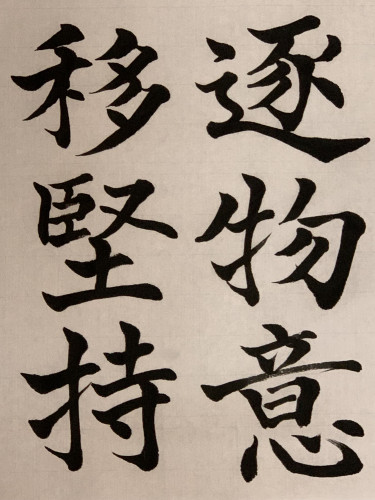 逐物意
移堅持